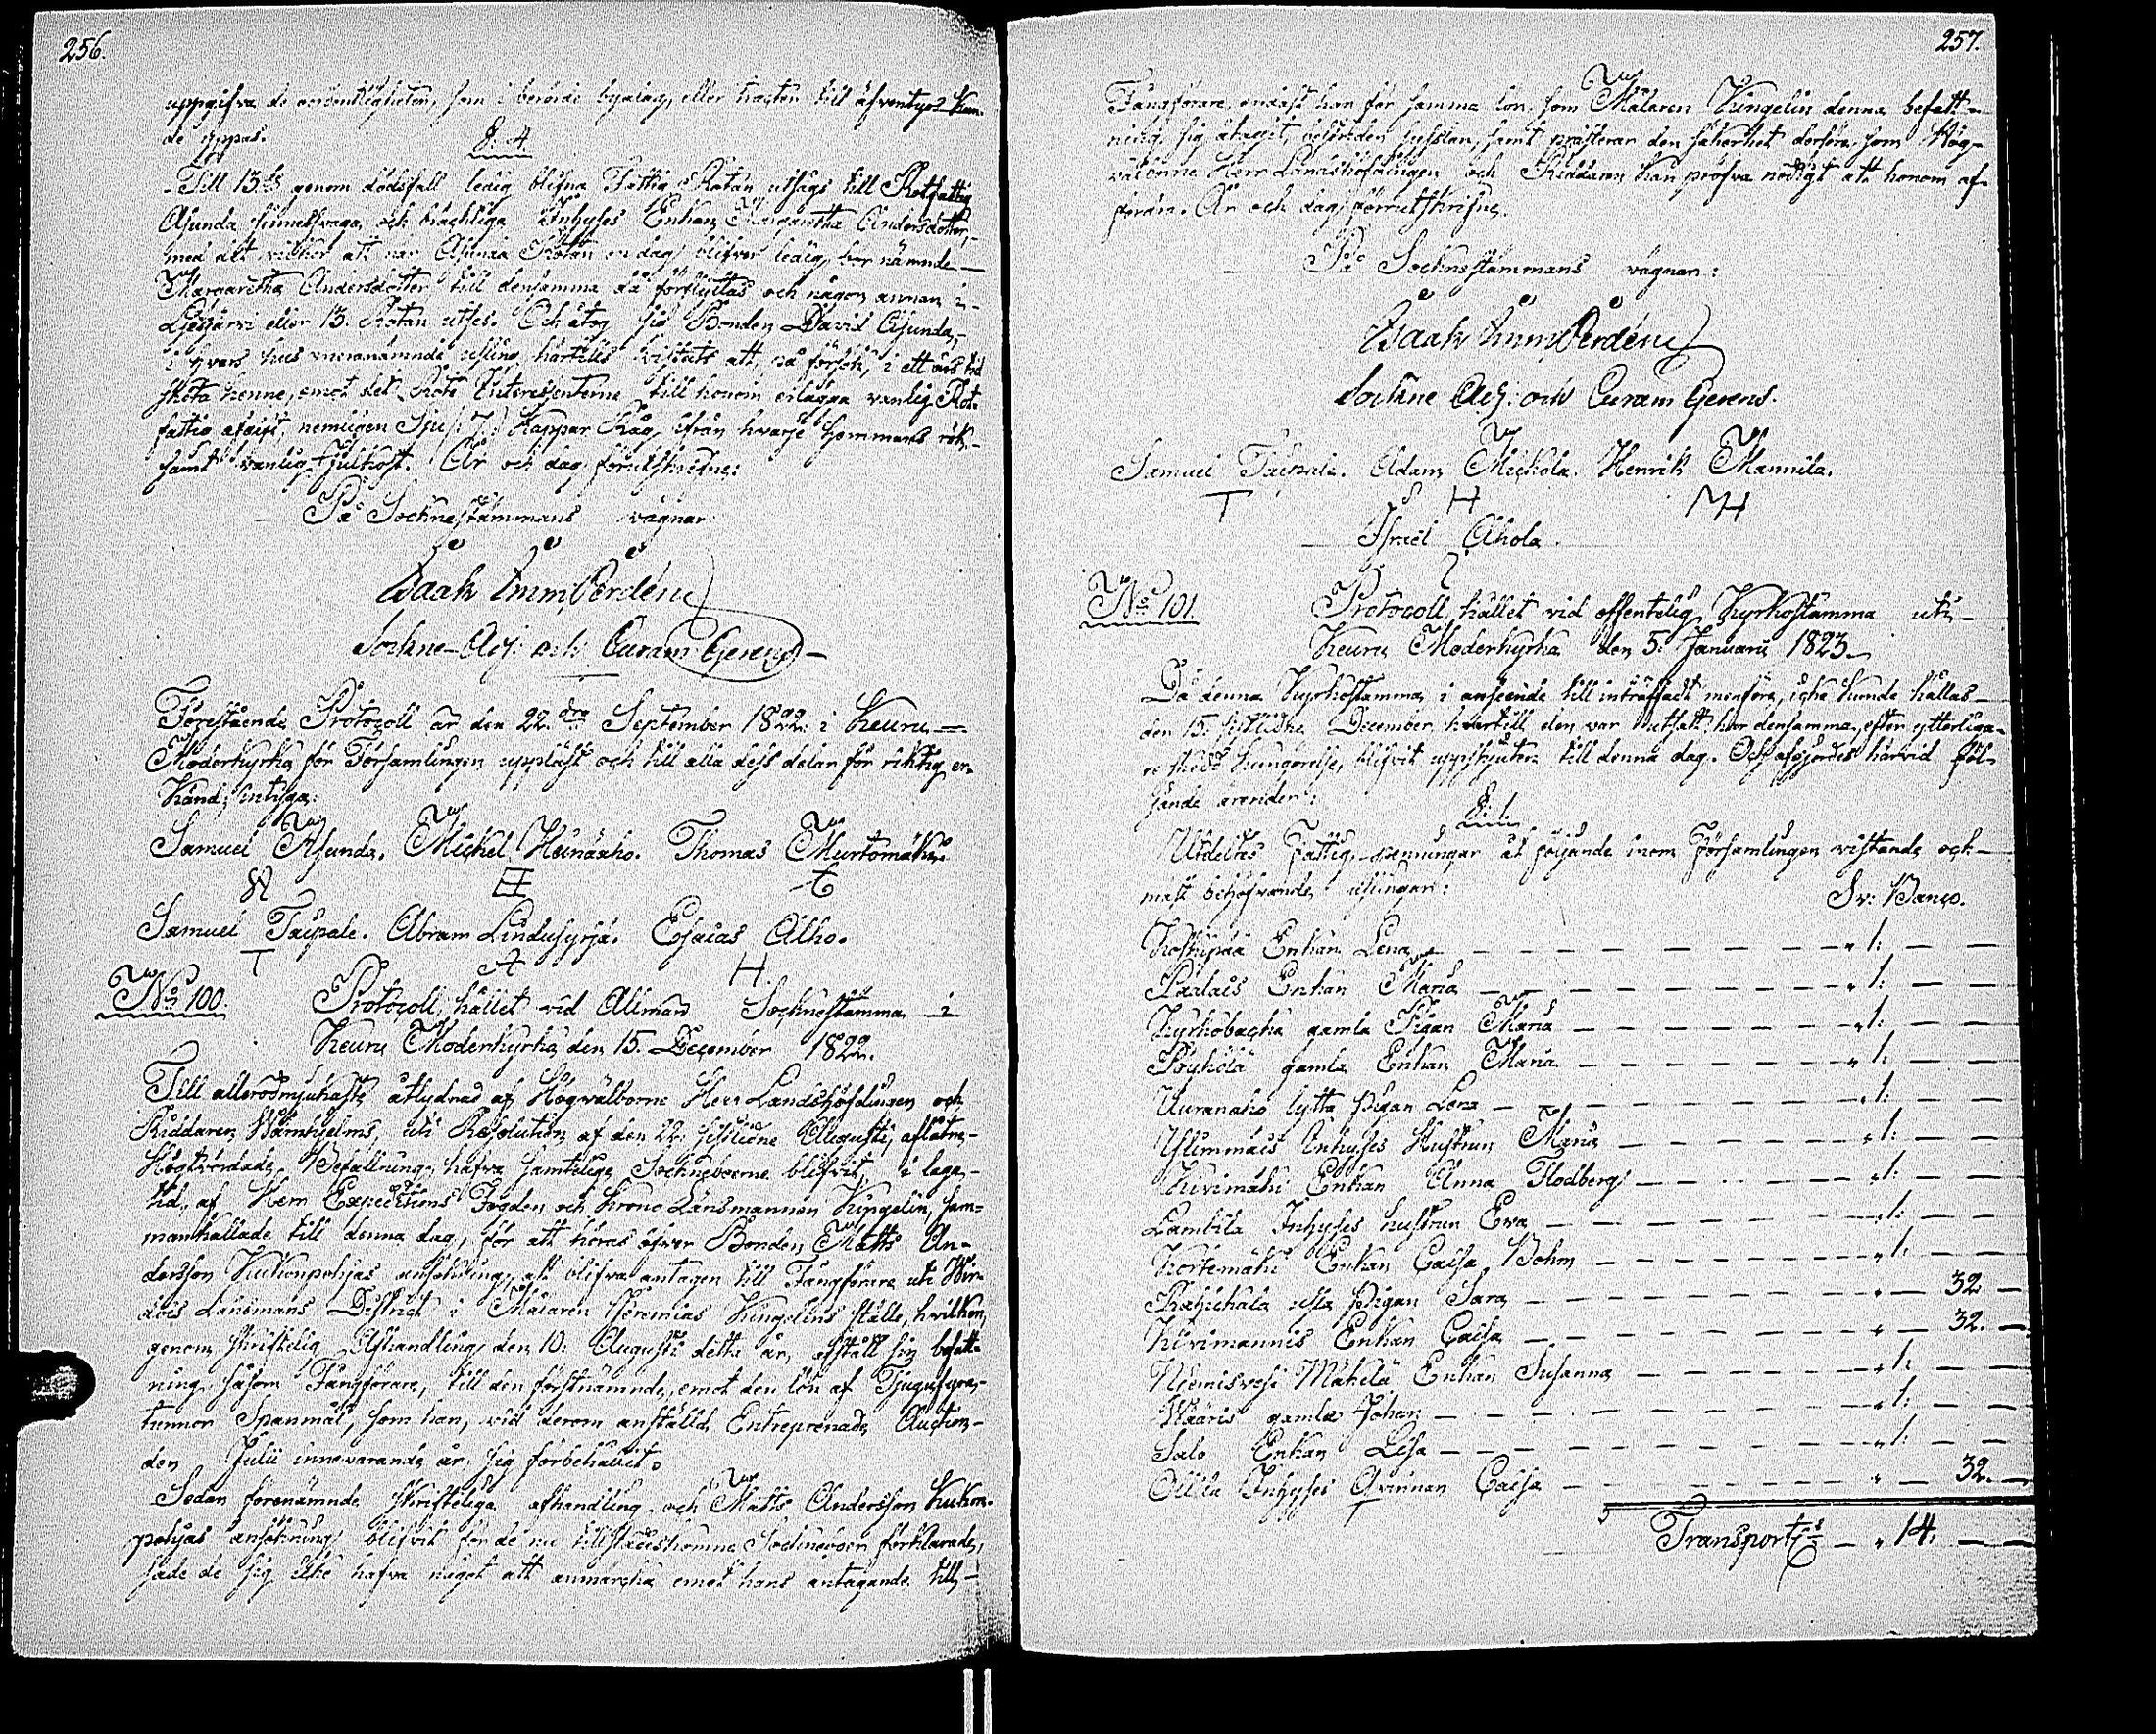 256.
uppgifva de oordentligheter, som i berörde byalag, eller trakten till äfventyrs kun-
de yppas.
§. 4.
Till 13de genom dödsfall ledig blifna Fattig Rotan utsågs till Rotfattig
Asunda sinnessvaga och bräckliga Inhyses Enkan Margaretha Andersdotter,
med det vilkor att när Asunda Rotan en dag blifver ledig, bör nämnde
Margaretha Andersdotter till densamma då förflyttas och någon annan i
Liesjärvi eller 13. Rotan utses. Och åtog sig Bonden David Asunda,
i hvars hus meranämnde usling härtills vistats att, på försök, i ett års tid
sköta henne, emot det Rote Intressenterne till honom erlägga vanlig Rot-
fattig afgift, nemligen Sju /: 7 :/ Kappar Råg, ifrån hvarje Hemmans rök,
samt vanlig Julkost. År och dag förutskrifne:
På Sockne stämmans vägnar
Isaak Imm. Perdén
Sockne-Adj: och Curam Gerens
Förestående Protocoll är den 22.dra September 1822. i Keuru
Moderkyrka för Församlingen uppläst och till alla dess delar för riktig er-
känd; intyga:
Samuel Asunda. Michel Heinäaho. Thomas Murtomäki.
Samuel Taipale. Abram Lindusyrjä. Esaias Alho.
T A H.
No 100. Protocoll, hållet vid Allmän Sockne stämma i
Keuru Moderkyrka den 15. December 1822.
Till allerödmjukaste åtlydnad af Högvälborne Herr Landshöfdingen och
Riddaren Wärnhjelms, uti Resolution af den 22. sistledne Augusti, aflåtne
Högtvördade Befallning, hafva samtelige Socknboerne blifvit, i laga
tid, af Herr Expeditions Fogden och Krono Länsmannen Kingelin, sam-
mankallade till denna dag, för att höras öfver Bonden Matts An-
dersson Kukonpohjas ansökning, att blifva antagen till Fångförare uti Wir-
dois Länsmans District i Målaren Jeremias Kingelins ställe, hvilken,
genom skriftelig Afhandling, den 10. Augusti detta år, afstått sin befatt-
ning såsom Fångförare, till den förstnämnde, emot den lön af Tjugufyra
tunnor Spanmål, som han, vid derom anställd Entreprenade Auction
den Julii innevarande år, sig förbehållit.
Sedan förenämnde skrifteliga afhandling och Matts Andersson Kukon-
pohjas ansökning blifvit för de nu tillstädeskomne Socknboer förklarade,
sade de sig icke hafva något att anmärka emot hans antagande till
257.
Fångförare, endast han för samma lön, som Målaren Kingelin denna befatt-
ning sig åtagit, bestrider sysslan, samt præsterar den säkerhet derföre, som Hög-
välborne Herr Landshöfdingen och Riddaren kan pröfva nödigt att honom af-
fordra. År och dag förrutskrifne.
På Socknestämmans vägnar:
Isaak Imm. Perdén
Sockne Adj: och Curam Gerens.
Samuel Taipale. Adam Mickola. Henrik Mannila.
T H MH
Israel Ahola.
No 101. Protocoll hållet vid offentelig Kyrkostämma uti
Keuru Moderkyrka den 5. Januarii 1823.
Då denna Kyrkostämma, i anseende till inträffadt menföre, icke kunde hållas
den 15. sistledne December, hvartill den var utsatt, har densamma, efter ytterliga-
re skedd kungörelse, blifvit uppskjuten till denna dag. Och afgjordes härvid föl-
jande ärenden:
§. 1.
Utdeltes Fattig-penningar åt följande inom Församlingen vistande och
mäst behöfvande uslingar:
Sv: Banco.
Koskipää Enkan Lena — „ 1: — —
Paalais Enkan Maria — „ 1: — —
Kyrkobacka gamla Pigan Maria — „ 1: — —
Pöyhölä gamla Enkan Maria — „ 1: — —
Auranaho lytta Pigan Lena — „ 1: — —
Ylimmäis Inhyses Hustrun Maria — „ 1: — —
Kivimäki Enkan Anna Flodberg — „ 1: — —
Lambila Inhyses hustrun Eva — „ 1: — —
Kortemäki Enkan Caisa Bohm — „ 1: — —
usla Pigan Sara — „ — 32 —
Kivimannis Enkan Caisa — „ — 32. —
Niemisvesi Mäkilä Enkan Susanna — „ 1: — —
gamla Johan — „ 1: — —
Salo Enkan Lisa — „ 1: — —
Ollila Inhyses Qvinnan Caisa — „ — 32. —
Transport — „ 14. — —